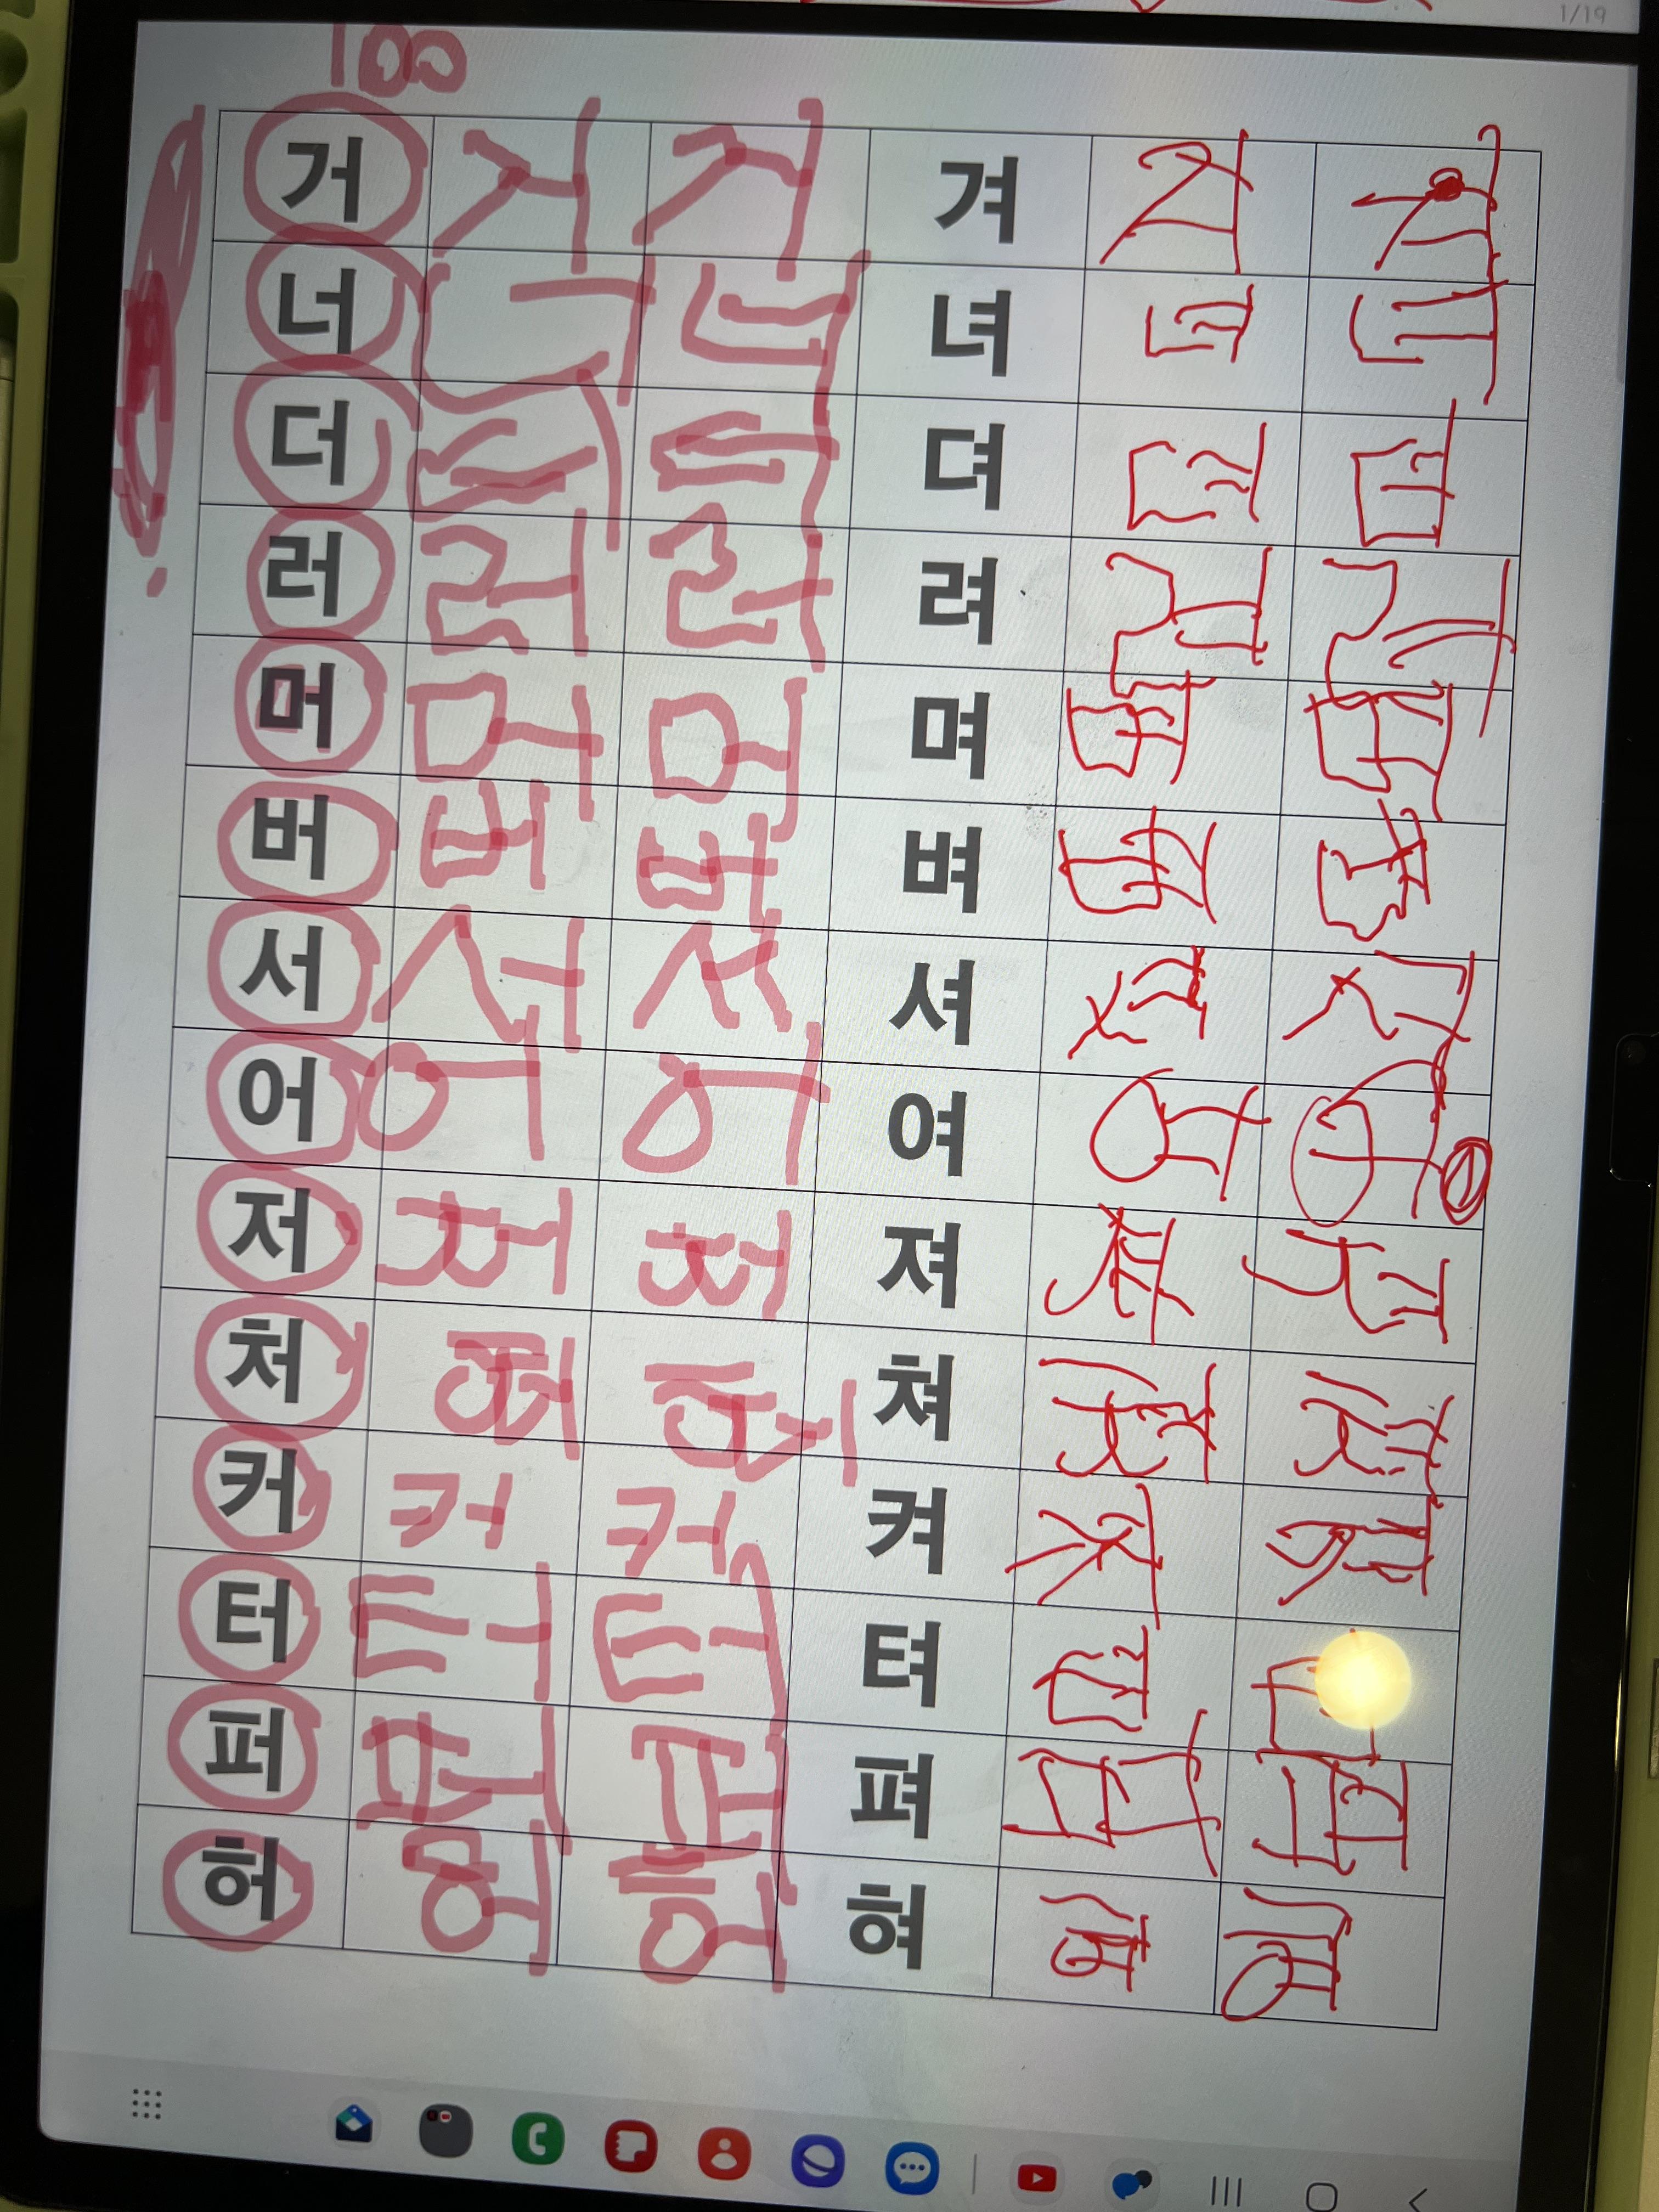 1/19
100
거 거 거 겨 겨 겨
너 너 너 녀 녀 녀
더 더 더 뎌 뎌 뎌
러 러 러 려 려 려
머 머 머 며 며 며
버 버 버 벼 벼 벼
서 서 서 셔 셔 셔
어 어 어 여 여 여
저 저 저 져 져 져
처 처 처 쳐 쳐 쳐
커 커 커 켜 켜 켜
터 터 터 텨 텨
퍼 퍼 퍼 펴 펴 펴
허 허 허 혀 혀 혀